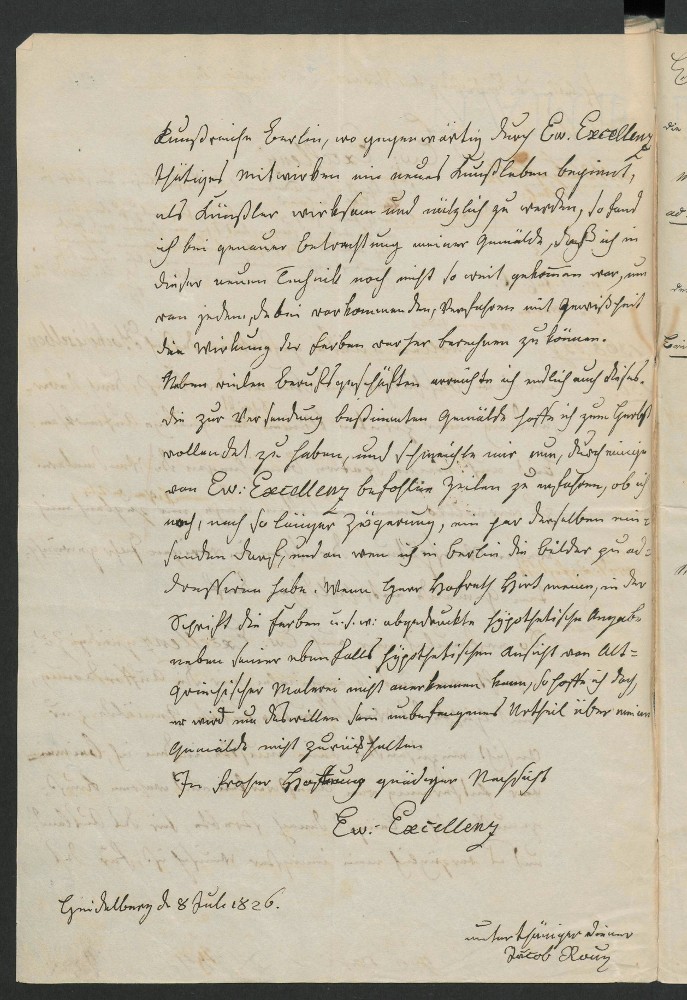 kunstreiche Berlin, wo gegenwärtig durch Ew. Excellenz
thätiges Mitwirken ein neues Kunstleben beginnt,
als Künstler wirksam und nützlich zu werden, so fand
ich bei genauer Betrachtung meiner Gemälde, daß ich in
dieser neuen Technik noch nicht so weit gekommen war, um
von jedem, dabei vorkommenden, Verfahren mit Gewißheit
die Wirkung der Farben vorher berechnen zu können.
Neben vielen Berufsgeschäften erreichte ich endlich auch dieses.
Die zur Versendung bestimmten Gemälde hoffe ich zum Herbst
vollendet zu haben, und schmeichle mir nun, durch einige
von Ew: Excellenz befohlne Zeilen zu erfahren, ob ich
noch, nach so langer Zögerung, ein par derselben ein-
senden darf, und an wen ich in Berlin die Bilder zu ad-
dressiren habe. Wenn Herr Hofrath Hirt meine, in der
Schrift die Farben u.s.w: abgedruckte hÿpothetische Angabe
neben seiner ebenfalls hÿpothetischen Ansicht von Alt=
Griechischer Malerei nicht anerkennen kann, so hoffe ich doch,
er wird um deswillen sein unbefangenes Urtheil über meine
Gemälde nicht zurückhalten
In froher Hoffnung gnädiger Nachsicht
Ew: Excellenz
Heidelberg d 8 Juli 1826.
unterthäniger Diener
Jacob Roux